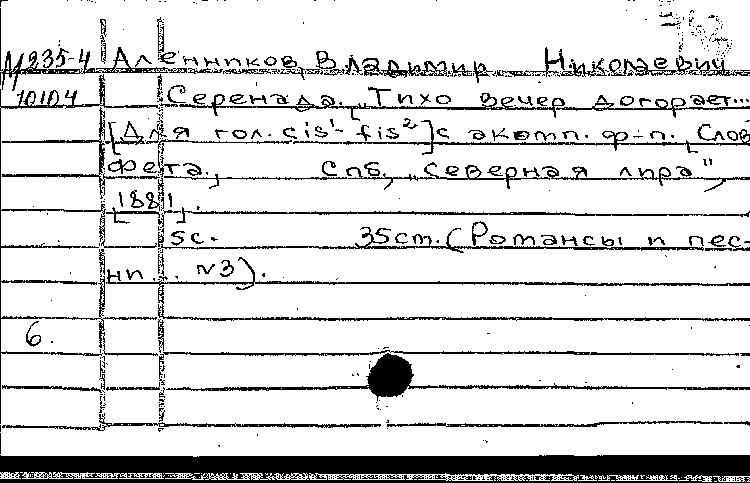 М235-4 Аленников, Владимир Николаевич
10104 Серенада. „Тихо вечер догорает...
[Для гол. cis¹- fis²] с акомп. ф-п., Слов
Фета., Спб, „Северная лира",
[1881].
5с. 35cm. (Романсы и пес-
ни... №3).
6.